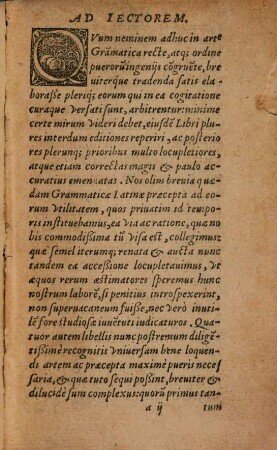 AD LECTOREM.
CVum neminem adhuc in arte
Grãmatica recte, atq; ordine
puerorũ ingenijs cõgruẽte, bre
uiterque tradenda satis ela-
borasse pleriq; eorum qui in ea cogitatione
curaque versati sunt, arbitrentur: minime
certe mirum videri debet, eiusdẽ Libri plu-
res interdum editiones reperiri, ac posterio
res plerunq; prioribus multo locupletiores,
atque etiam correctas magis & paulo ac-
curatius emendatas. Nos olim breuia quæ-
dam Grammaticæ Latinæ præcepta ad eo-
rum vtilitatem, quos priuatim id tempo-
ris instituebamus, ea via ac ratione, quæ no
bis commodissima tũ visa est, collegimus:
quæ semel iterumq; renata & aucta nunc
tandem ea accessione locupletauimus, vt
æquos rerum æstimatores speremus hunc
nostrum laborẽ, si penitius introspexerint,
non superuacaneum fuisse, nec verò inuti-
lẽ fore studiosæ iuuẽtuti iudicaturos. Qua-
tuor autem libellis nunc postremum diligẽ-
tissimè recognitis vniuersam bene loquen-
di artem ac præcepta maximè pueris neces
saria, & quæ tuto sequi possint, breuiter &
dilucidè sum complexus: quorũ primus tan-
a ij tum